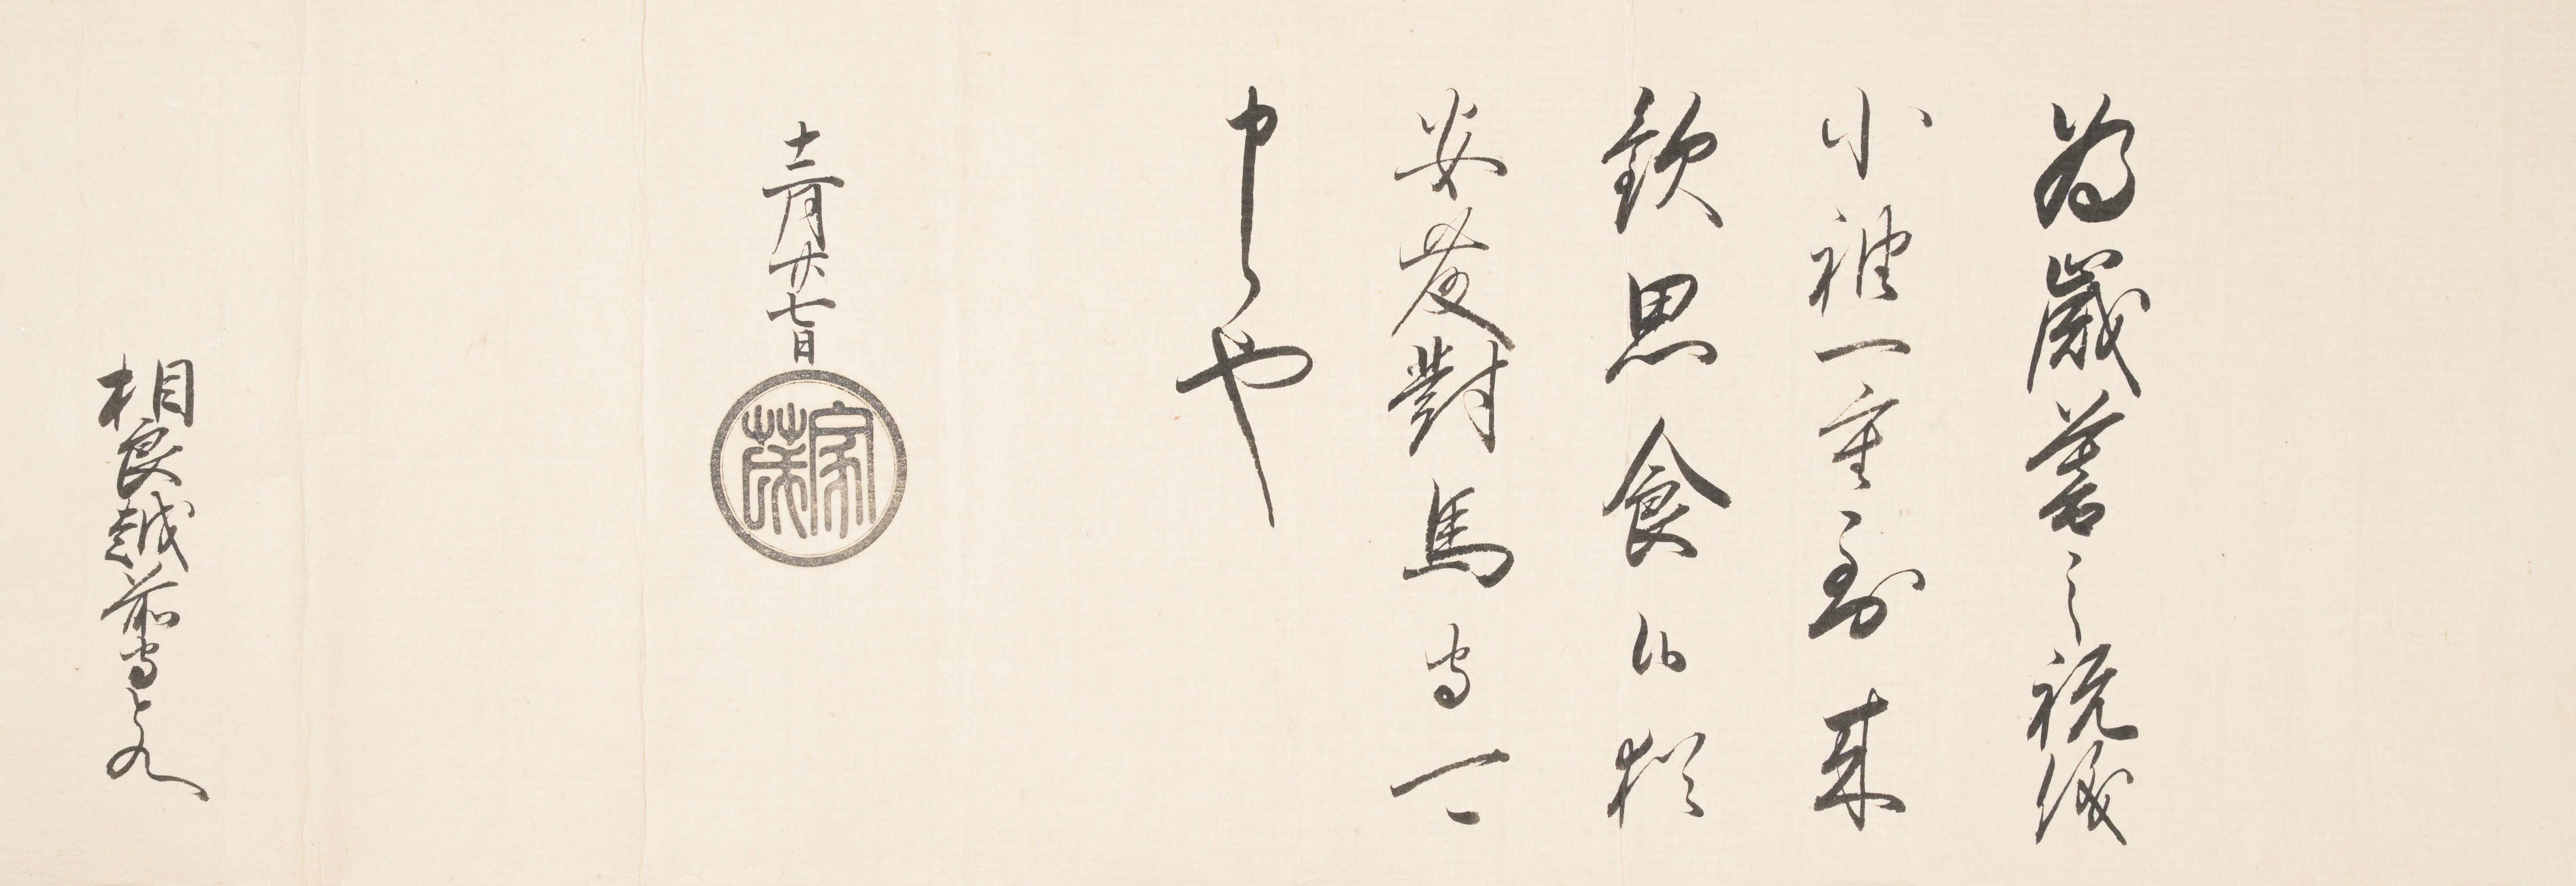 為歳暮之祝儀
小袖一重到来
歓思食候猶
安藤對馬守可
申候也
十二月廿七日
家茂
相良越前守とのへ